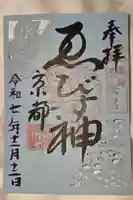 奉拝
ゑびす神
京都
令和七年十二月十二日